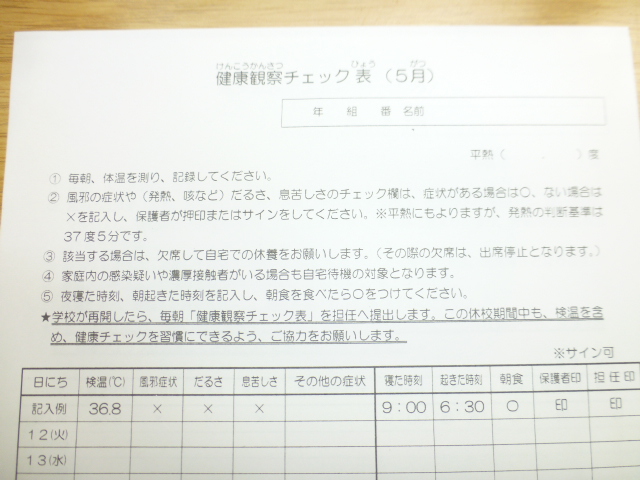 けんこうかんさつ ひょう がつ
健康観察チェック表（５月）
年 組 番 名前
平熱（ . ）度
① 毎朝、体温を測り、記録してください。
② 風邪の症状や（発熱、咳など）だるさ、息苦しさのチェック欄は、症状がある場合は〇、ない場合は
×を記入し、保護者が押印またはサインをしてください。※平熱にもよりますが、発熱の判断基準は
37度5分です。
③ 該当する場合は、欠席して自宅での休養をお願いします。（その際の欠席は、出席停止となります。）
④ 家庭内の感染疑いや濃厚接触者がいる場合も自宅待機の対象となります。
⑤ 夜寝た時刻、朝起きた時刻を記入し、朝食を食べたら〇をつけてください。
★学校が再開したら、毎朝「健康観察チェック表」を担任へ提出します。この休校期間中も、検温を含
め、健康チェックを習慣にできるよう、ご協力をお願いします。
※サイン可
日にち 検温(℃) 風邪症状 だるさ 息苦しさ その他の症状 寝た時刻 起きた時刻 朝食 保護者印 担任印
記入例 36.8 × × × 9：00 6：30 〇 印 印
12(火)
13(水)